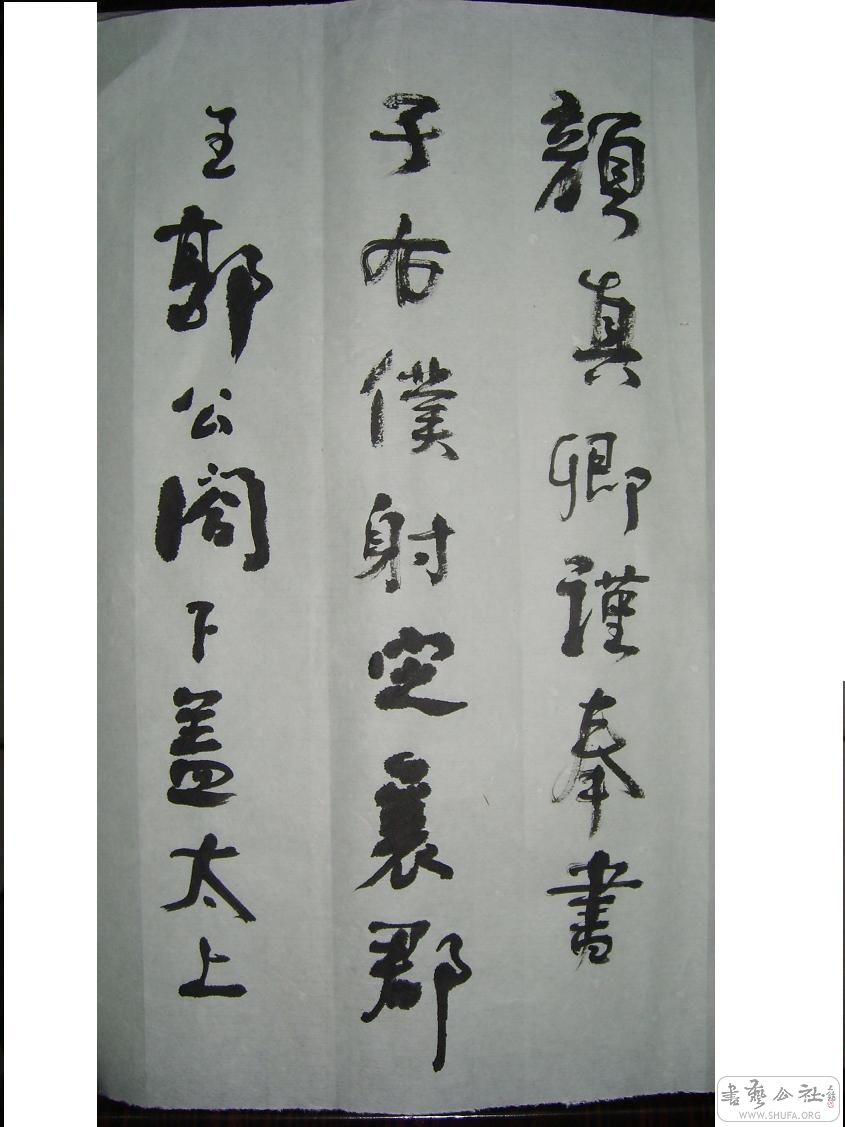 顔真卿謹奉書
于右僕射定襄郡
王郭公閤下盖太上
書藝公社
WWW.SHUFA.ORG